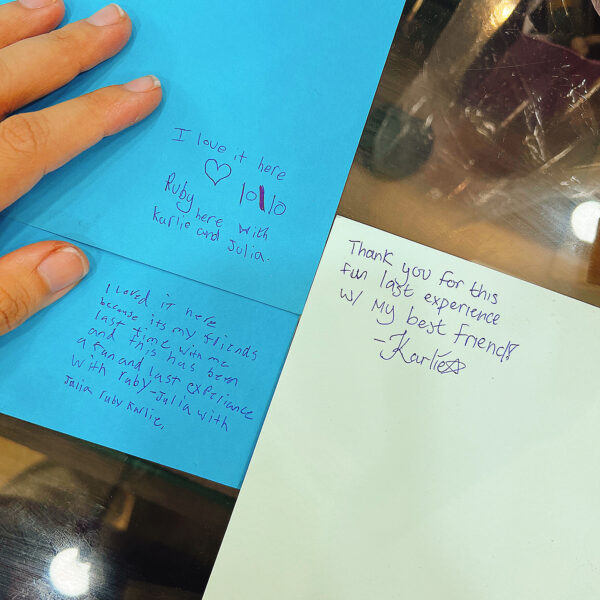 I love it here
♡ 10\10
Ruby here with
Karlie and Julia.
I loved it here
because its my friends
last time with me
and this has been
a fun and last experiance
with ruby-Julia with
Julia ruby Karlie,
Thank you for this
fun last experience
w/ My best friend!
-Karlie☆